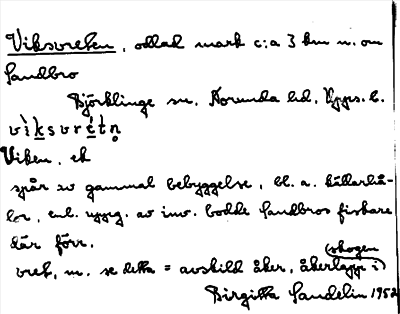 Viksvreten, odlad mark c:a 3 km n. om
Sandbro
Björklinge sn, Norunda hd, Upps. l.
vìksvrétn̥
Viken, ek
spår av gammal bebyggelse, bl. a. källarhå-
lor, enl. uppg. av inv. bodde Sandbros fiskare
där förr.
vret, m. se detta = avskild åker, åkerlapp i
skogen
Birgitta Sandelin 1952